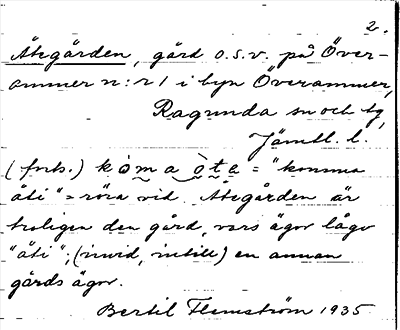 2.
Åtegården, gård o.s.v. på Över-
ammer n:r 1 i byn Överammer,
Ragunda sn och tg,
Jämtl. l.
(forts.) kòma òta = "komma
åti" = röra vid. Åtegården är
troligen den gård, vars ägor lågo
"åti", (invid, intill) en annan
gårds ägor.
Bertil Flemström 1935